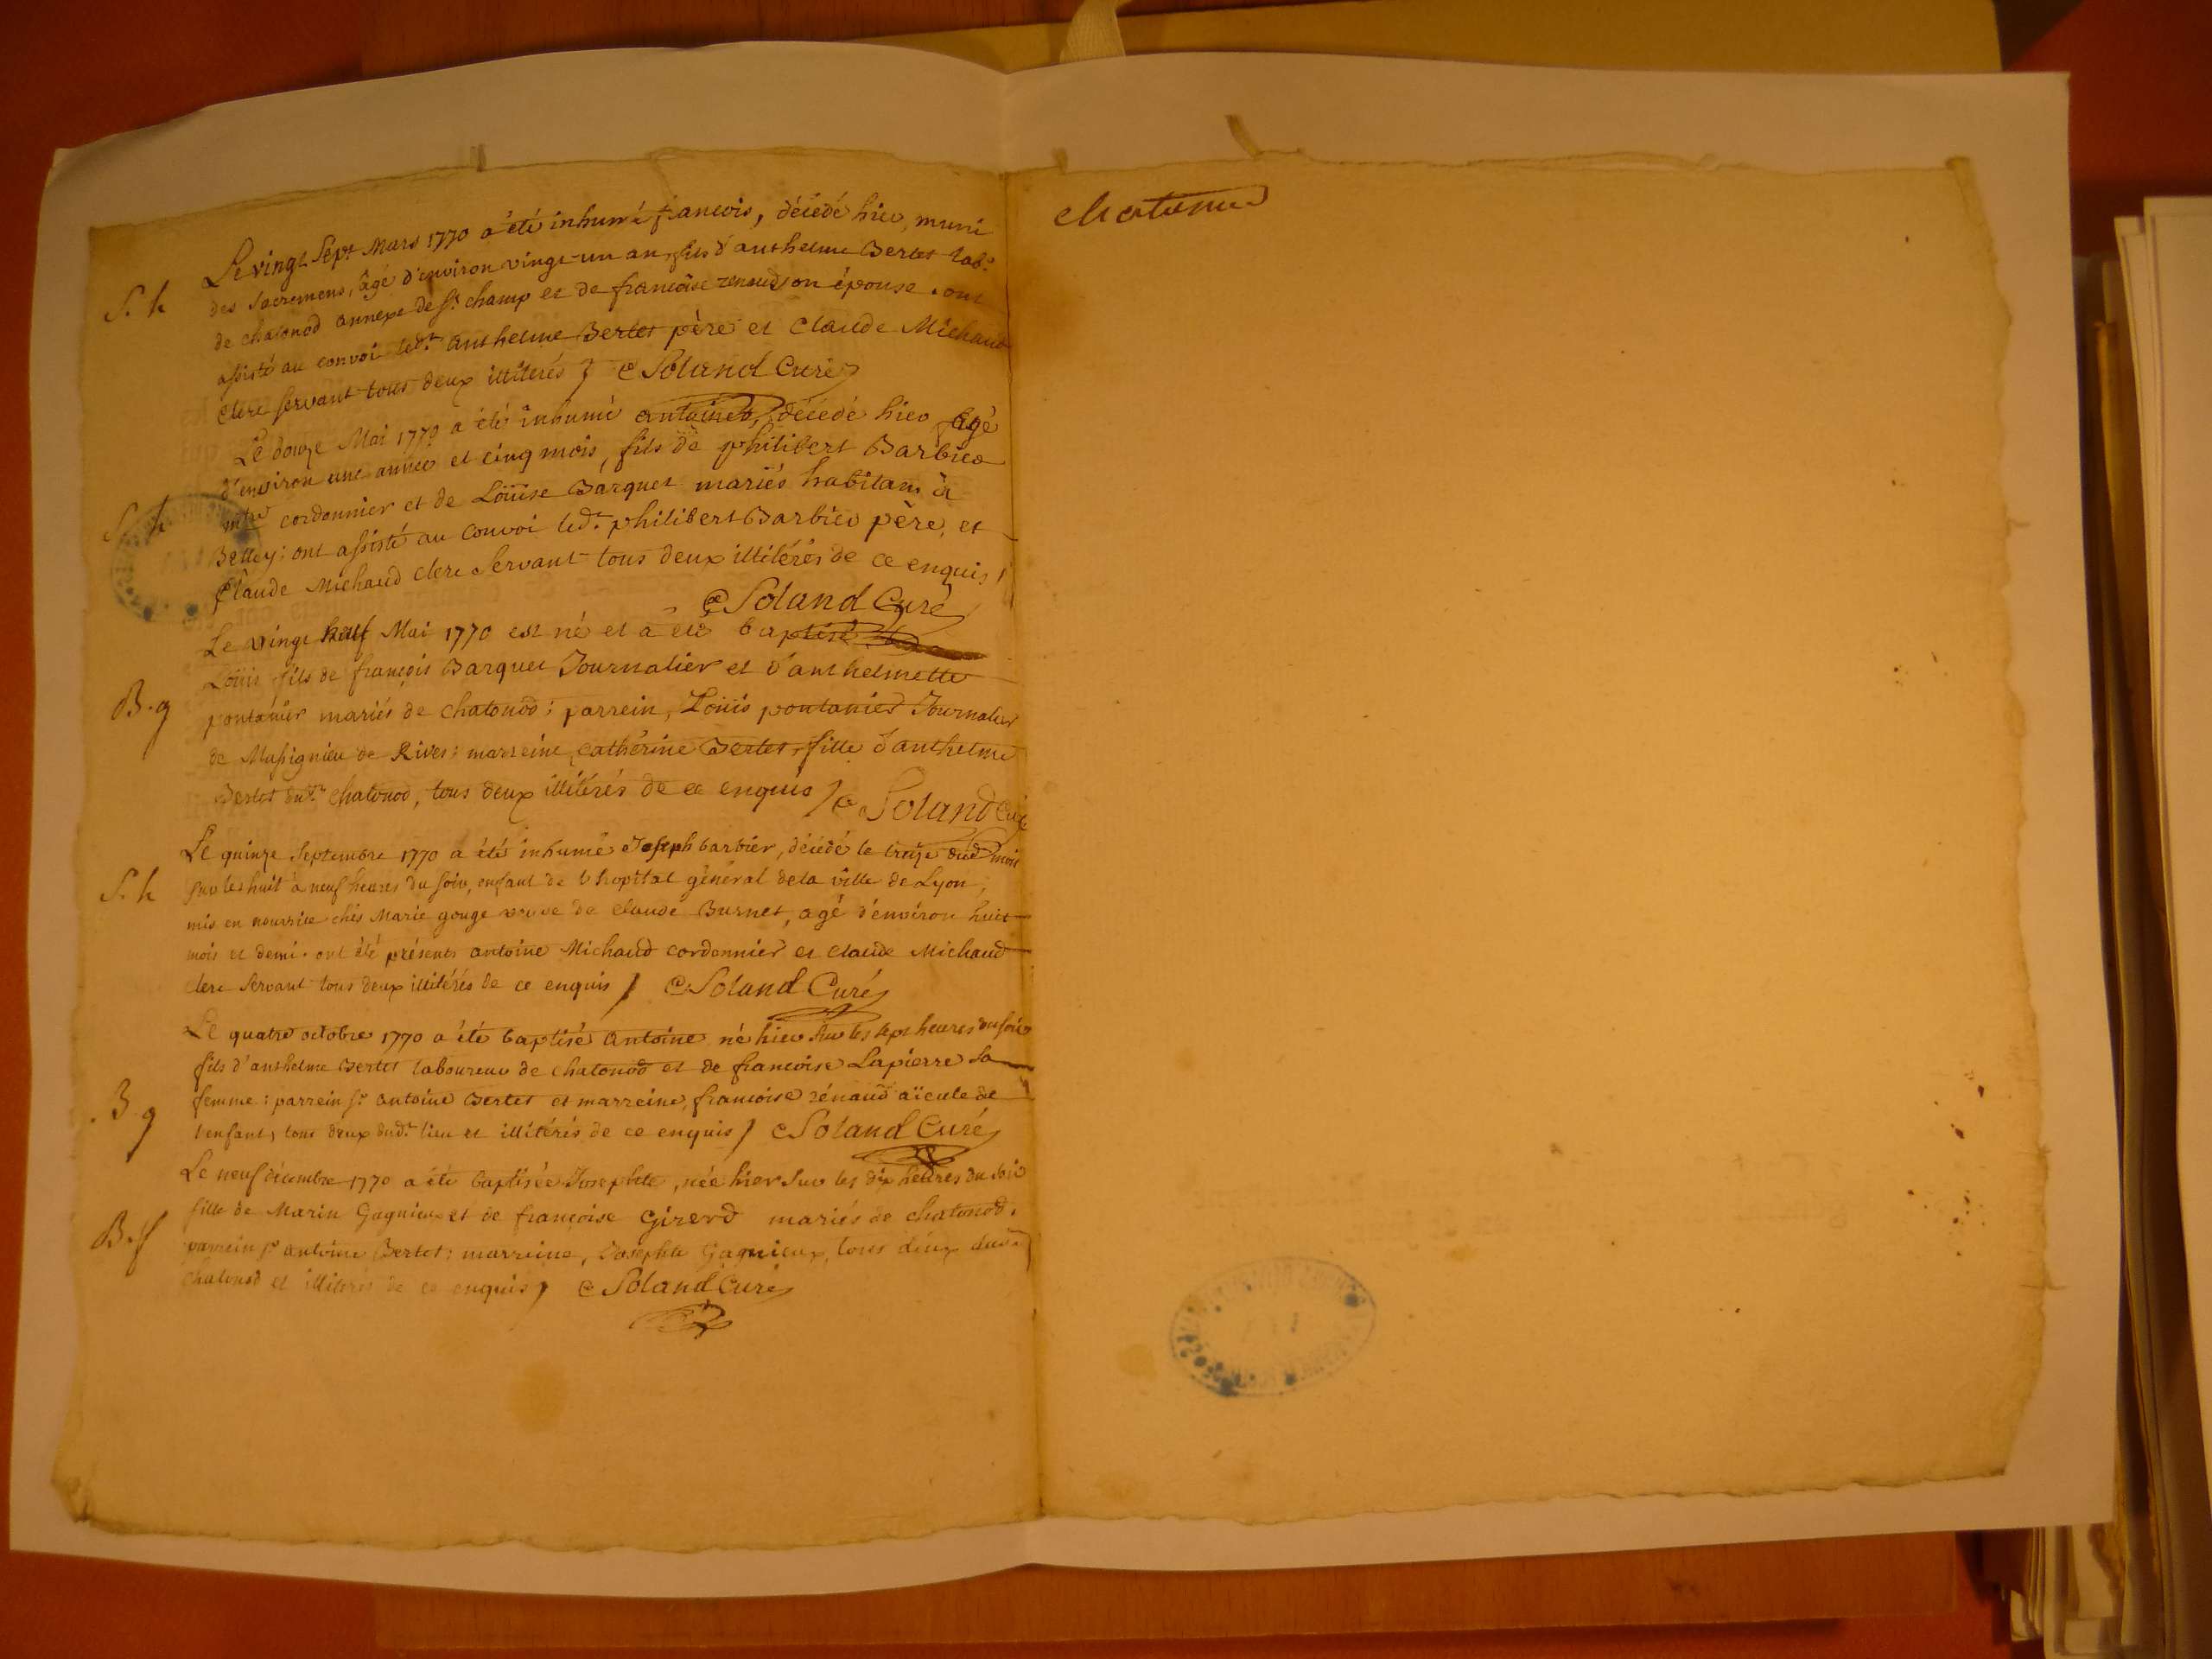 S. h
Le vingt Sept Mars 1770 a été inhumé francois, décédé hier, muni
des Sacremens, âgé d'environ vingt-un an, fils d'anthelme Bertet lab.r
de chatonod annexe de St. champ et de francoise renaud son épouse. ont
assisté au convoi led.t anthelme Bertet père et Claude Michaud
Clerc servant tous deux illitérés / C Soland Curé
S. h
Le douze Mai 1770 a été inhumé antoine, décédé hier agé
d'environ une année et cinq mois, fils de philibert Barbier
mtre cordonnier et de Loüise Barquet mariés habitans à
Belley; ont assisté au convoi led.t philibert Barbier père, et
Claude Michaud clerc Servant tous deux illitérés de ce enquis /
C Soland Curé
Le vingt neuf Mai 1770 est né et a été baptisé
B. g
Loüis fils de françois Barquet Journalier et d'anthelmette
pontanier mariés de chatonod; parrein, Loüis pontanier Journalier
de Massignieu de Rives; marreine, cathérine Bertet, fille d'anthelme
Bertet dud.t chatonod, tous deux illitérés de ce enquis / C Soland Curé
S. h
Le quinze Septembre 1770 a été inhumé Joseph barbier, décédé le treize dud mois
sur les huit à neuf heures du soir, enfant de l'hopital général de la ville de Lyon,
mis en nourrice chés Marie gouge veuve de Claude Burnet, agé d'environ huit
mois et demi. ont été présents antoine Michaud cordonnier et claude Michaud
clerc Servant tous deux illitérés de ce enquis / C Soland Curé
B g
Le quatre octobre 1770 a été baptisé antoine né hier sur les sept heures du soir
fils d'anthelme Bertet laboureur de chatonod et de francoise Lapierre sa
femme: parrein Sr antoine Bertet et marreine, francoise rénaud aïeule de
l'enfant, tous deux dud.t lieu et illitérés de ce enquis / C Soland Curé
B. f
Le neuf décembre 1770 a été baptisée Josephte, née hier sur les dix heures du soir
fille de Marin Gagnieux et de françoise Girerd mariés de chatonod.
parrein Sr antoine Bertet; marreine, Josephte Gagnieux, tous deux dud.t
Chatonod et illitérés de ce enquis / C Soland Curé